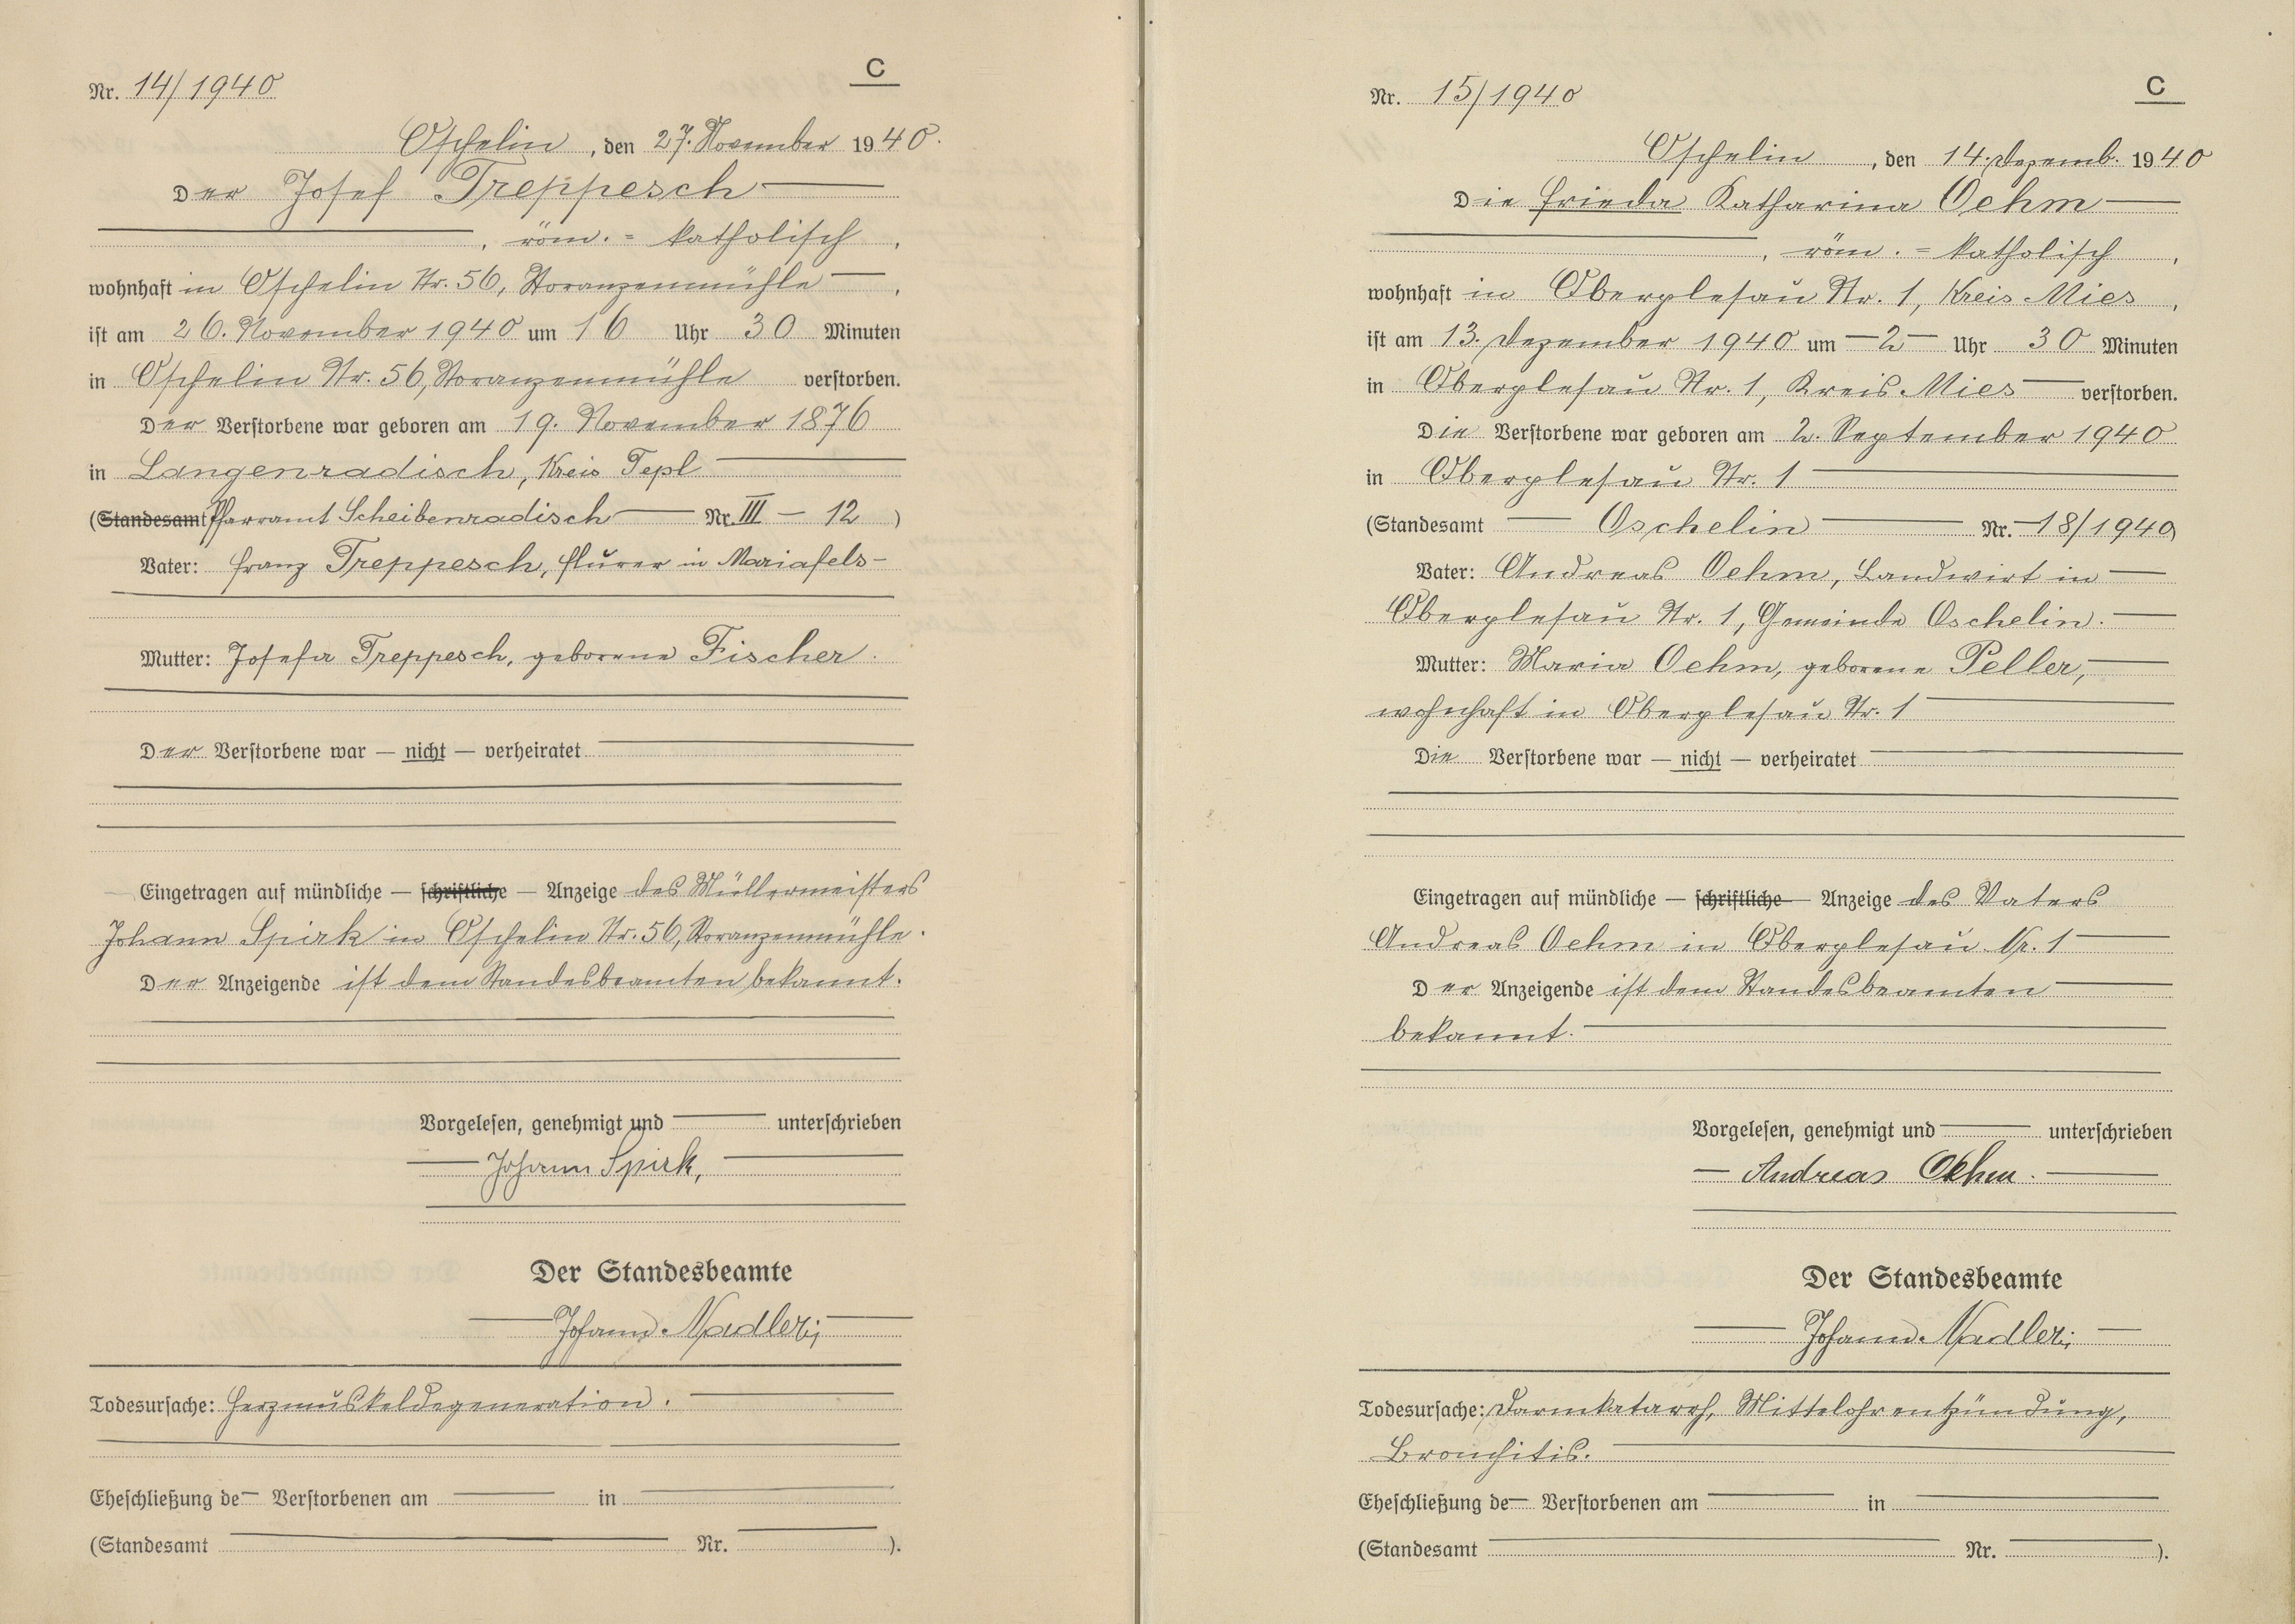 Nr. 14/1940
C
Oschelin, den 27. November 1940.
Der Josef Treppesch
, röm.=katholisch,
wohnhaft in Oschelin Nr. 56, Woranzenmühle,
ist am 26. November 1940 um 16 Uhr 30 Minuten
in Oschelin Nr. 56, Woranzenmühle verstorben.
Der Verstorbene war geboren am 19. November 1876
in Langenradisch, Kreis Tepl
(Standesamt Pfarramt Scheibenradisch — Nr. III – 12)
Vater: Franz Treppesch, Flurer in Mariafels–
Mutter: Josefa Treppesch, geborene Fischer.
Der Verstorbene war — nicht — verheiratet
Eingetragen auf mündliche — schriftliche — Anzeige des Müllermeisters
Johann Spirk in Oschelin Nr. 56, Woranzenmühle.
Der Anzeigende ist dem Standesbeamten bekannt.
Vorgelesen, genehmigt und — unterschrieben
Johann Spirk,
Der Standesbeamte
Johann Nadler;
Todesursache: Herzmuskeldegeneration.
Eheschließung de— Verstorbenen am — in
(Standesamt — Nr. — ).
Nr. 15/1940
C
Oschelin, den 14. Dezemb. 1940
Die Frieda Katharina Oehm
, röm.=katholisch,
wohnhaft in Oberplesau Nr. 1, Kreis Mies,
ist am 13. Dezember 1940 um —2— Uhr 30 Minuten
in Oberplesau Nr. 1, Kreis Mies — verstorben.
Die Verstorbene war geboren am 2. September 1940
in Oberplesau Nr. 1
(Standesamt — Oschelin — Nr. —18/1940)
Vater: Andreas Oehm, Landwirt in
Oberplesau Nr. 1, Gemeinde Oschelin.
Mutter: Maria Oehm, geborene Peller,
wohnhaft in Oberplesau Nr. 1
Die Verstorbene war — nicht — verheiratet
Eingetragen auf mündliche — schriftliche — Anzeige des Vaters
Andreas Oehm in Oberplesau Nr. 1
Der Anzeigende ist dem Standesbeamten
bekannt.
Vorgelesen, genehmigt und — unterschrieben
Andreas Oehm.
Der Standesbeamte
Johann Nadler;
Todesursache: Darmkatarrh, Mittelohrentzündung,
Bronchitis.
Eheschließung de— Verstorbenen am — in
(Standesamt — Nr. — ).